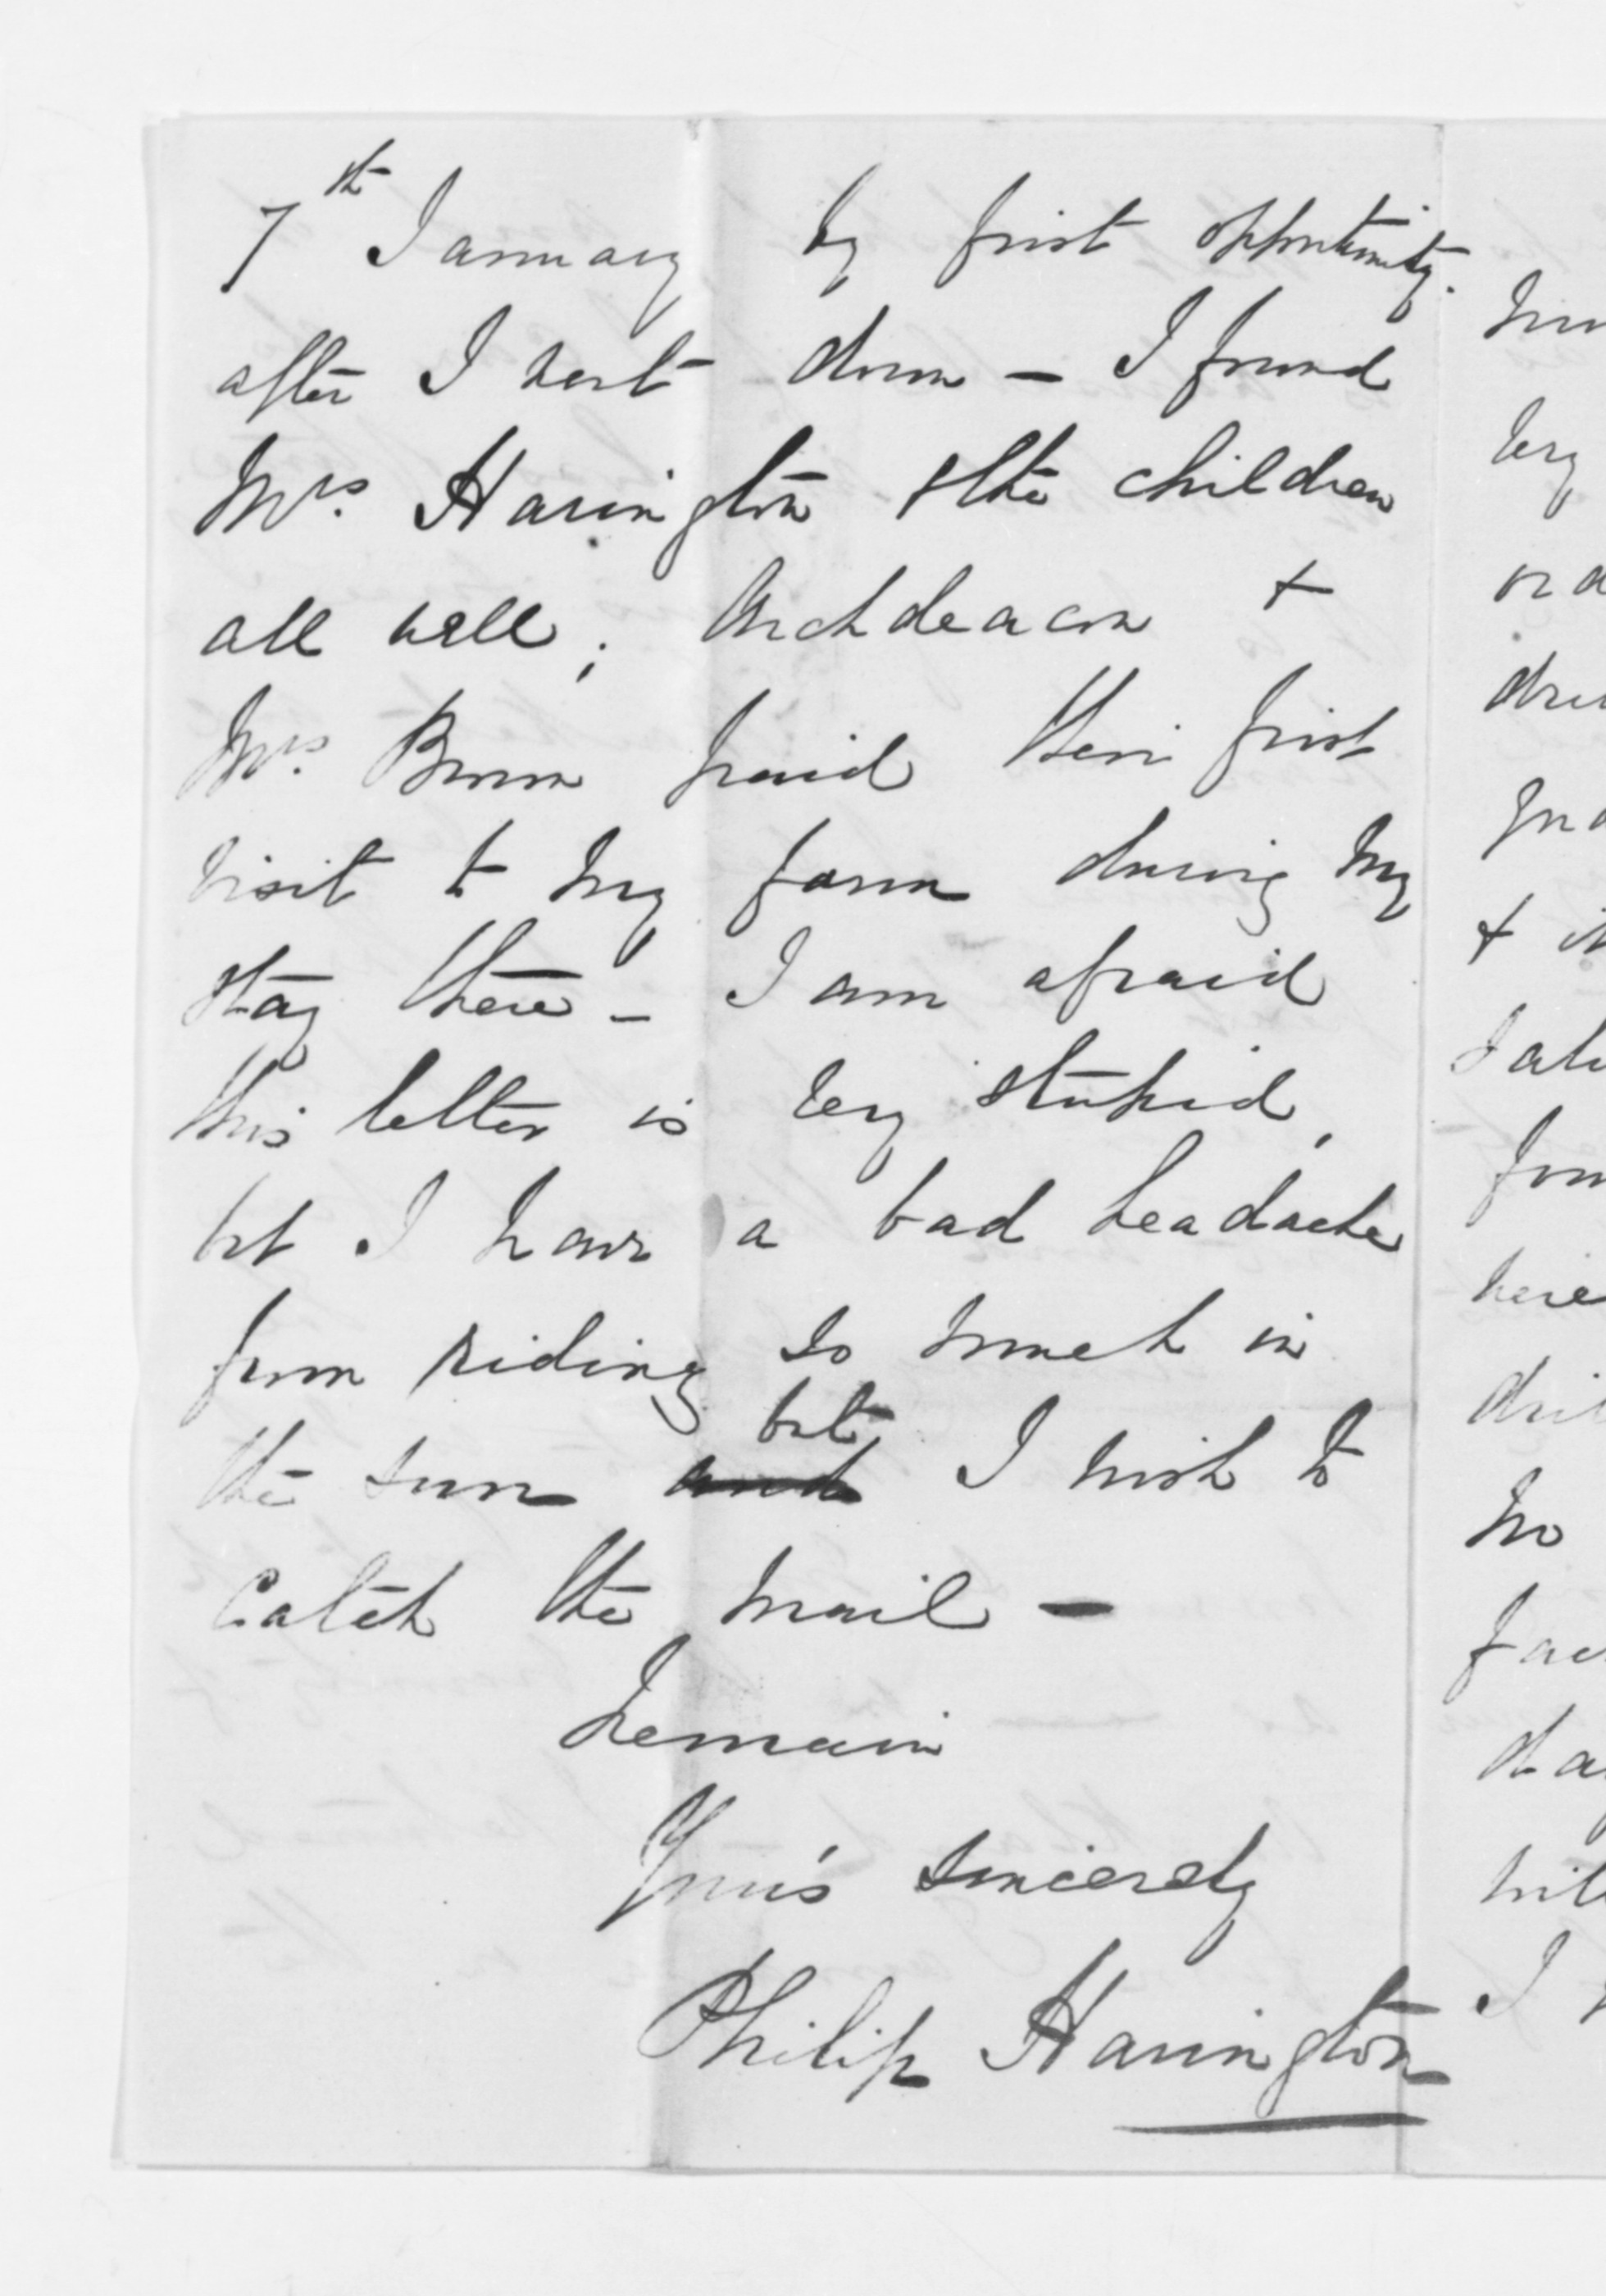 7th January by first opportunity.
after I went down — I found
Mrs. Harington & the children
all well; Archdeacon &
Mrs. Brown paid their first
visit to my farm during my
stay there — I am afraid
this letter is very stupid,
bt I have a bad headache
from riding so much in
but
the sun and I wish to
Catch the mail —
Remain
Your's sincerely
Philip Harington
very
&
here
no
I